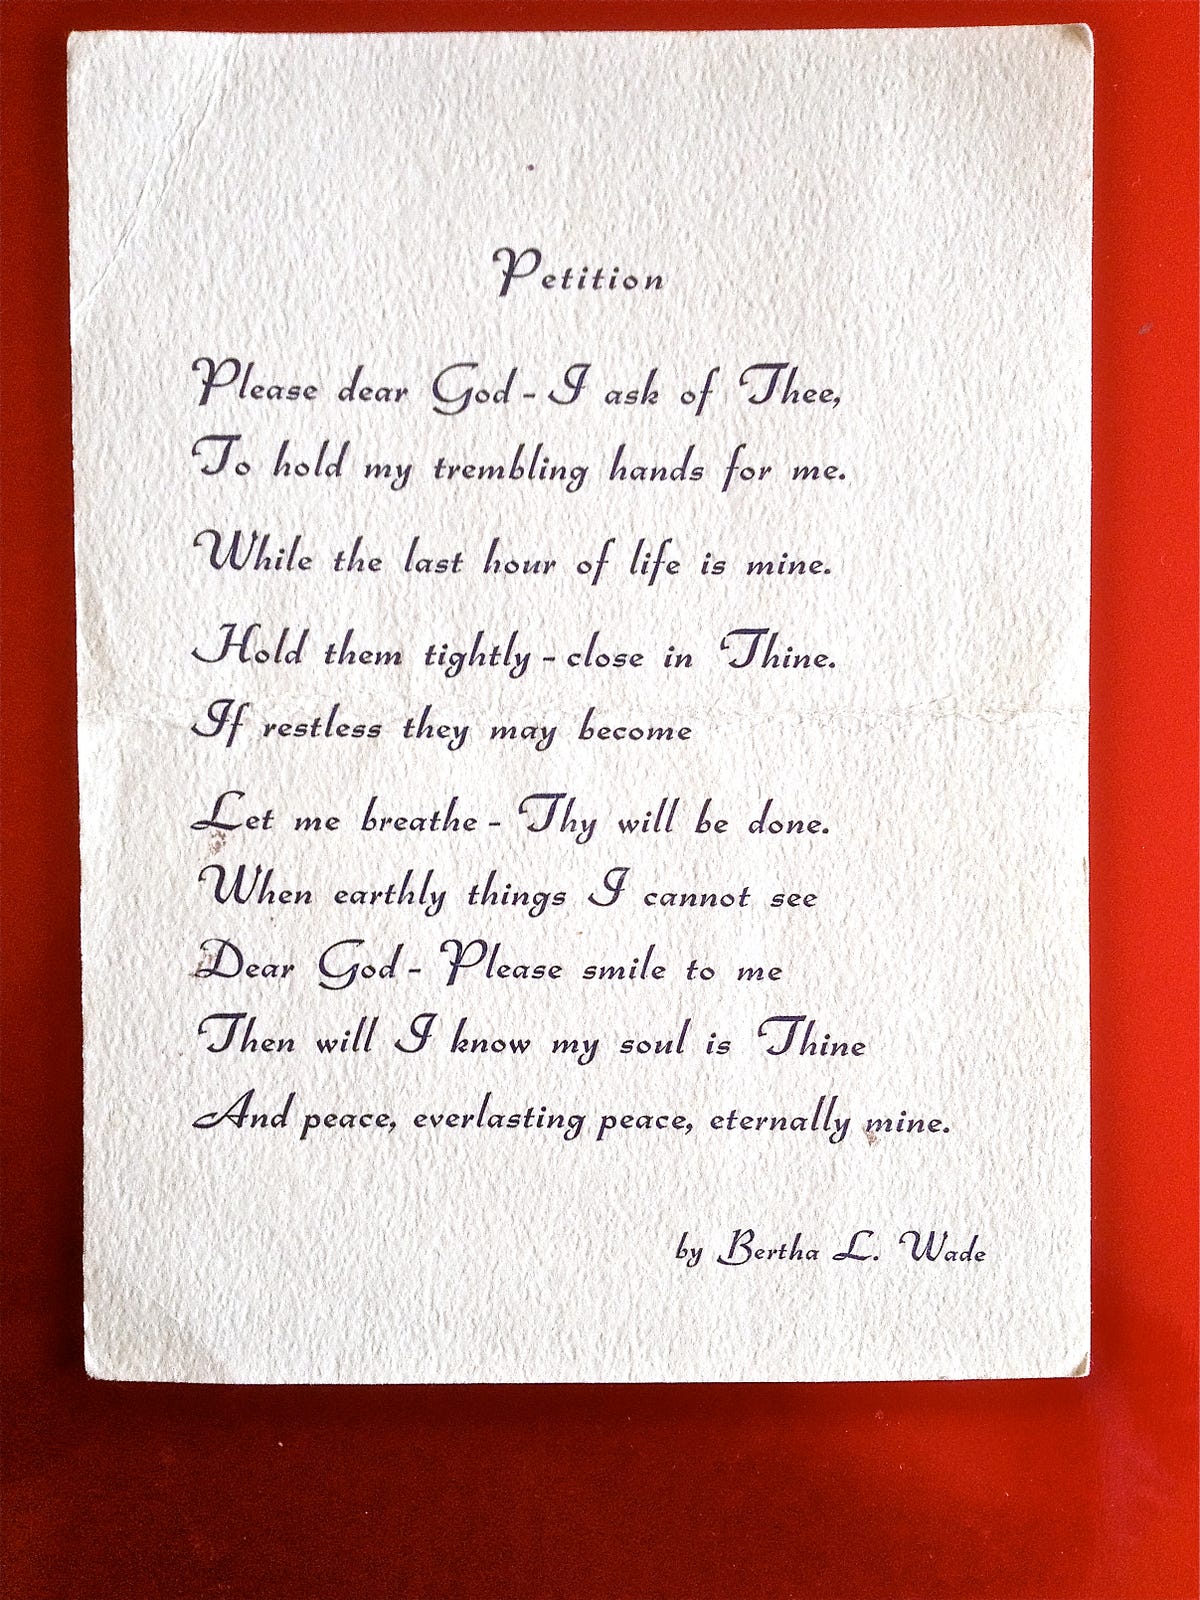 Petition
Please dear God - I ask of Thee,
To hold my trembling hands for me.
While the last hour of life is mine.
Hold them tightly - close in Thine.
If restless they may become
Let me breathe - Thy will be done.
When earthly things I cannot see
Dear God - Please smile to me
Then will I know my soul is Thine
And peace, everlasting peace, eternally mine.
by Bertha L. Wade